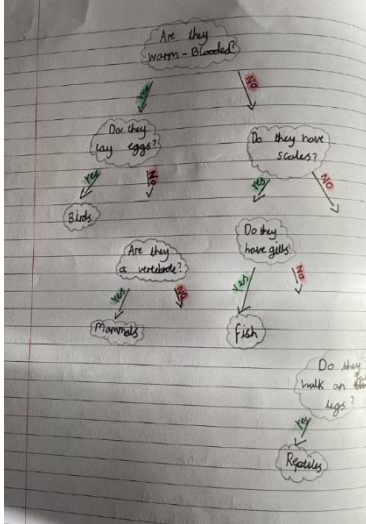 Are they
warm-Blooded?
yes
No
Do they
lay eggs?
Do they have
scales?
yes
No
yes
NO
Birds
Are they
a vertebrate?
Do they
have gills?
yes
No
yes
No
Mammals
fish
Do they
walk on
legs?
yes
Reptiles